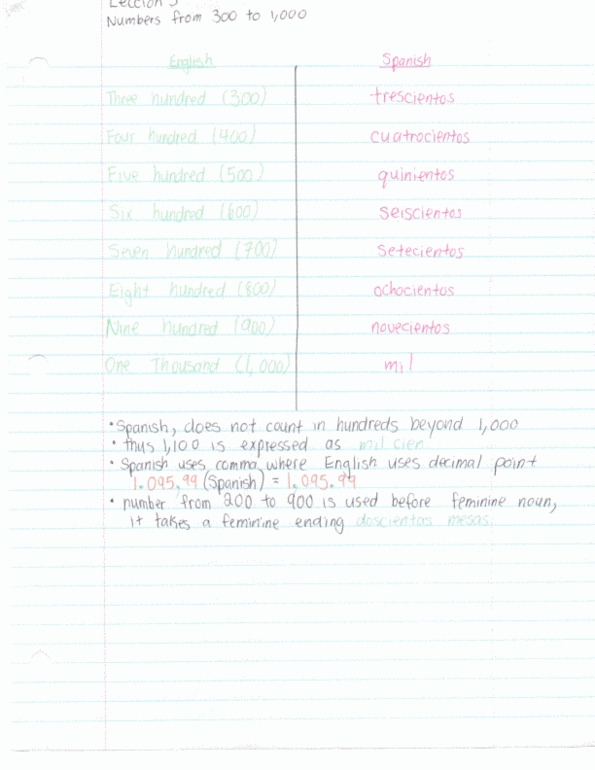 Leccion 5
Numbers from 300 to 1,000
English Spanish
Three hundred (300) trescientos
Four hundred (400) cuatrocientos
Five hundred (500) quinientos
Six hundred (600) seiscientos
Seven hundred (700) setecientos
Eight hundred (800) ochocientos
Nine hundred (900) novecientos
One Thousand (1,000) mil
• Spanish, does not count in hundreds beyond 1,000
• thus 1,100 is expressed as mil cien
• Spanish uses comma, where English uses decimal point
1.095,99 (Spanish) = 1,095.99
• number from 200 to 900 is used before feminine noun,
it takes a feminine ending doscientas mesas.